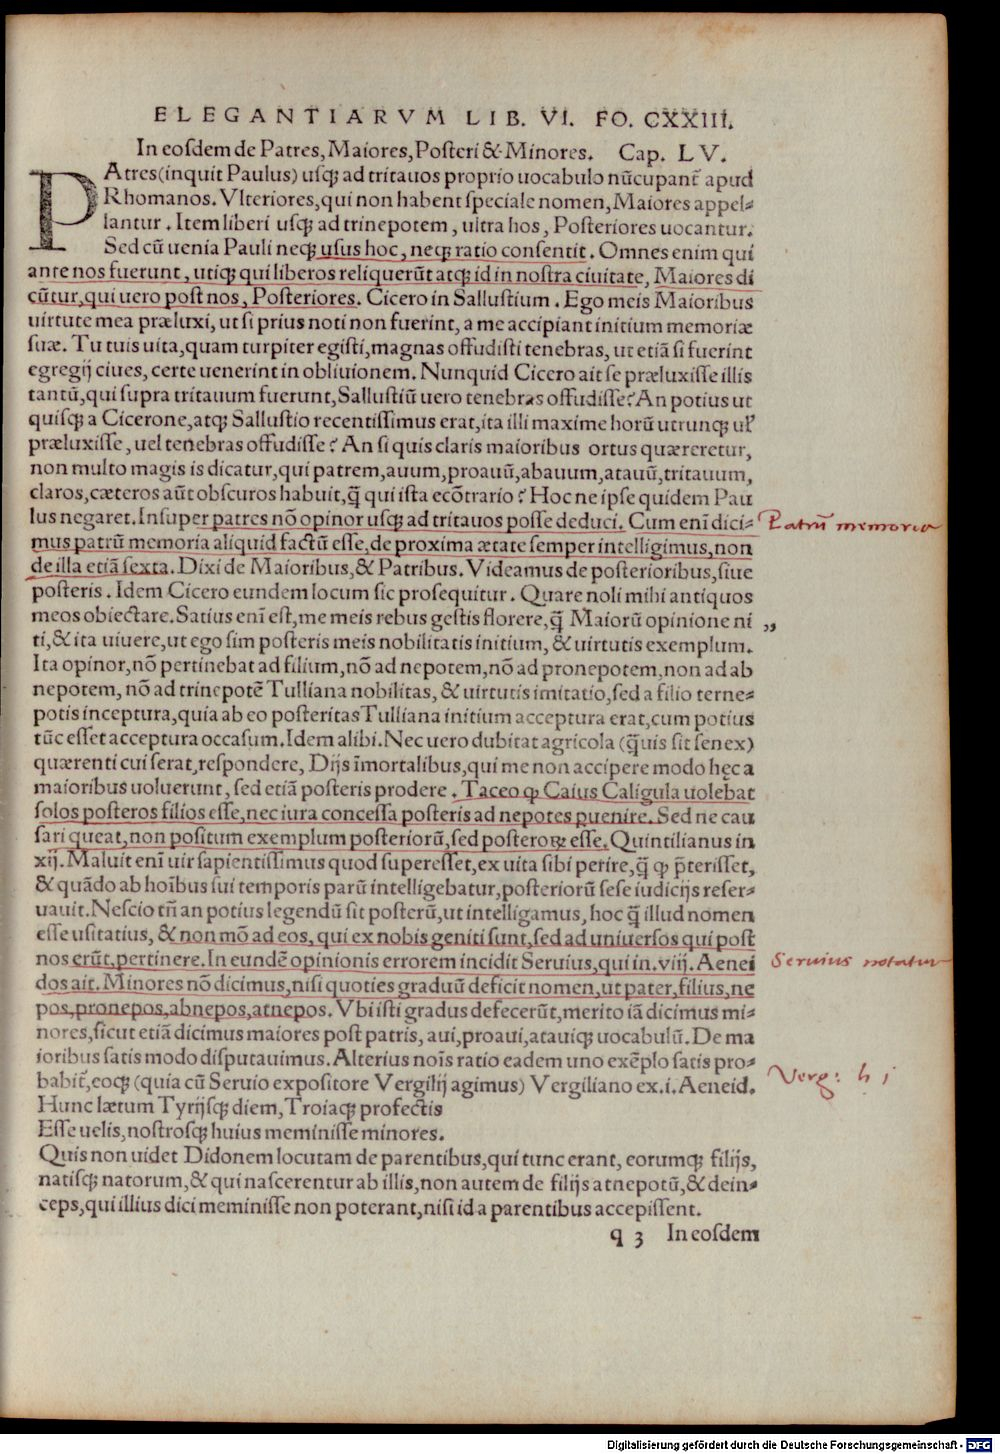 ELEGANTIARVM LIB. VI. FO. CXXIII.
In eosdem de Patres, Maiores, Posteri & Minores. Cap. LV.
PAtres(inquit Paulus) usq; ad tritauos proprio uocabulo nūcupant̄ apud
Rhomanos. Vlteriores, qui non habent speciale nomen, Maiores appel-
lantur. Item liberi usq; ad trinepotem, ultra hos, Posteriores uocantur.
Sed cū uenia Pauli neq; usus hoc, neq; ratio consentit. Omnes enim qui
ante nos fuerunt, utiq; qui liberos reliquerūt atq; id in nostra ciuitate, Maiores di
cūtur, qui uero post nos, Posteriores. Cicero in Sallustium. Ego meis Maioribus
uirtute mea præluxi, ut si prius noti non fuerint, a me accipiant initium memoriæ
suæ. Tu tuis uita, quam turpiter egisti, magnas offudisti tenebras, ut etiā si fuerint
egregij ciues, certe uenerint in obliuionem. Nunquid Cicero ait se præluxisse illis
tantū, qui supra tritauum fuerunt, Sallustiū uero tenebras offudisse? An potius ut
quisq; a Cicerone, atq; Sallustio recentissimus erat, ita illi maxime horū utrunq; ul̄
præluxisse, uel tenebras offudisse? An si quis claris maioribus ortus quæreretur,
non multo magis is dicatur, qui patrem, auum, proauū, abauum, atauū, tritauum,
claros, cæteros aūt obscuros habuit, q̄ qui ista ecōtrario? Hoc ne ipse quidem Pau
lus negaret. Insuper patres nō opinor usq; ad tritauos posse deduci. Cum enī dici-
mus patrū memoria aliquid factū esse, de proxima ætate semper intelligimus, non
de illa etiā sexta. Dixi de Maioribus, & Patribus. Videamus de posterioribus, siue
posteris. Idem Cicero eundem locum sic prosequitur. Quare noli mihi antiquos
meos obiectare. Satius enī est, me meis rebus gestis florere, q̄ Maiorū opinione ni
ti, & ita uiuere, ut ego sim posteris meis nobilitatis initium, & uirtutis exemplum.
Ita opinor, nō pertinebat ad filium, nō ad nepotem, nō ad pronepotem, non ad ab
nepotem, nō ad trinepotē Tulliana nobilitas, & uirtutis imitatio, sed a filio terne-
potis inceptura, quia ab eo posteritas Tulliana initium acceptura erat, cum potius
tūc esset acceptura occasum. Idem alibi. Nec uero dubitat agricola (q̄uis sit senex)
quærenti cui serat, respondere, Dijs īmortalibus, qui me non accipere modo hęc a
maioribus uoluerunt, sed etiā posteris prodere. Taceo qp Caius Caligula uolebat
solos posteros filios esse, nec iura concessa posteris ad nepotes puenire. Sed ne cau
sari queat, non positum exemplum posteriorū, sed posteroꝝ esse. Quintilianus in
xij. Maluit enī uir sapientissimus quod superesset, ex uita sibi perire, q̄ qp p̄terisset,
& quādo ab hoībus sui temporis parū intelligebatur, posteriorū sese iudicijs reser-
uauit. Nescio tn̄ an potius legendū sit posterū, ut intelligamus, hoc q̄ illud nomen
esse usitatius, & non mō ad eos, qui ex nobis geniti sunt, sed ad uniuersos qui post
nos erūt, pertinere. In eundē opinionis errorem incidit Seruius, qui in. viij. Aenei
dos ait. Minores nō dicimus, nisi quoties graduū deficit nomen, ut pater, filius, ne
pos, pronepos, abnepos, atnepos. Vbi isti gradus defecerūt, merito iā dicimus mi-
nores, sicut etiā dicimus maiores post patris, aui, proaui, atauiq; uocabulū. De ma
ioribus satis modo disputauimus. Alterius noīs ratio eadem uno exēplo satis pro-
babit̄, eoq; (quia cū Seruio expositore Vergilij agimus) Vergiliano ex. i. Aeneid.
Hunc lætum Tyrijsq; diem, Troiaq; profectis
Esse uelis, nostrosq; huius meminisse minores.
Quis non uidet Didonem locutam de parentibus, qui tunc erant, eorumq; filijs,
natisq; natorum, & qui nascerentur ab illis, non autem de filijs atnepotū, & dein-
ceps, qui illius dici meminisse non poterant, nisi id a parentibus accepissent.
q 3 In eosdem
Patrū memoria
„
Seruius notatur
Verg:
Digitalisierung gefördert durch die Deutsche Forschungsgemeinschaft - DFG